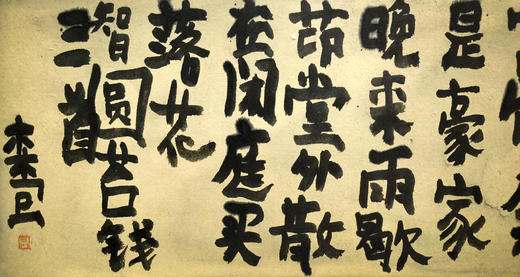 是豪家
晚来雨歇
茆堂外散
在闲庭买
落花
智圆苔钱